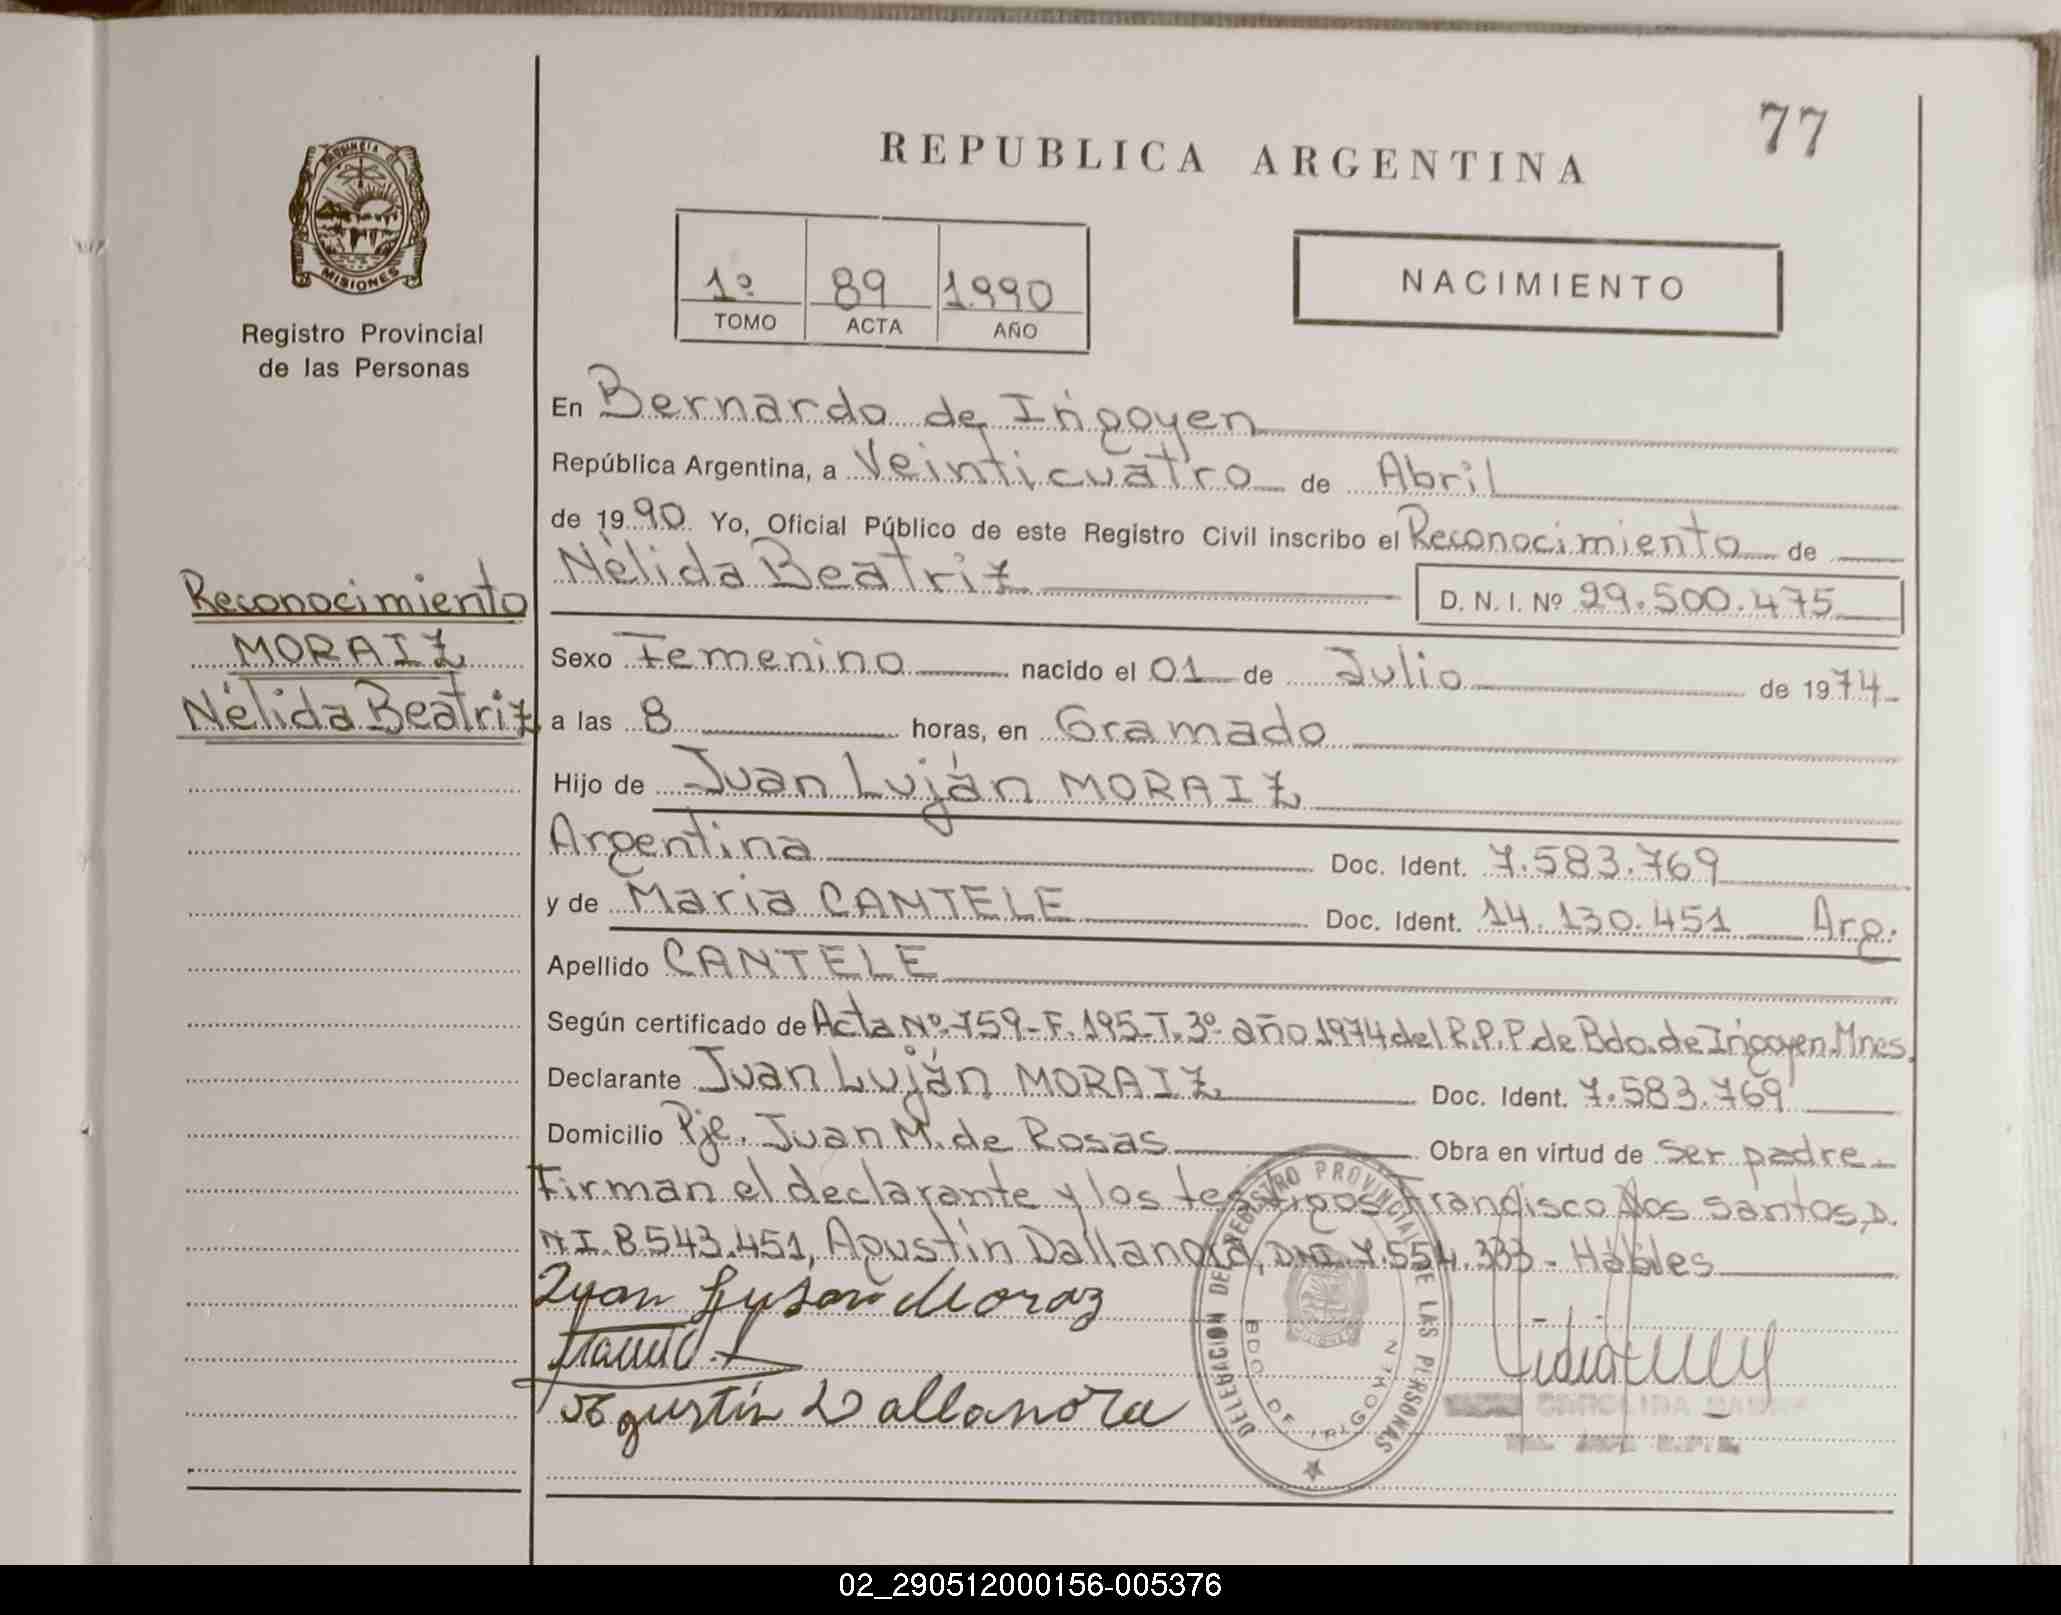 77
REPUBLICA ARGENTINA
PROVINCIA DE MISIONES
Registro Provincial
de las Personas
1º 89 1990
TOMO ACTA AÑO
NACIMIENTO
En Bernardo de Irigoyen
República Argentina, a Veinticuatro de Abril
de 1990 Yo, Oficial Público de este Registro Civil inscribo el Reconocimiento de
Nélida Beatriz D. N. I. Nº 29.500.475
Reconocimiento
MORAIZ
Nélida Beatriz
Sexo Femenino nacido el 01 de Julio de 1974
a las 8 horas, en Gramado
Hijo de Juan Luján MORAIZ
Argentina Doc. Ident. 7.583.769
y de Maria CANTELE Doc. Ident. 14.130.451 Arg.
Apellido CANTELE
Según certificado de Acta Nº 759-F.195-T.3º año 1974 del R.P.P. de Bdo. de Irigoyen Mnes.
Declarante Juan Luján MORAIZ Doc. Ident. 7.583.769
Domicilio Pje. Juan M. de Rosas Obra en virtud de ser padre
Firman el declarante y los testigos Francisco Dos Santos, D.
N.I. 8543.451, Agustín Dallanora, DNI 7.554.333 - Hábiles
Juan Lujan Moraz
Agustín Dallanora
DELEGACION DEL REGISTRO PROVINCIAL DE LAS PERSONAS
BDO. DE IRIGOYEN
02_290512000156-005376